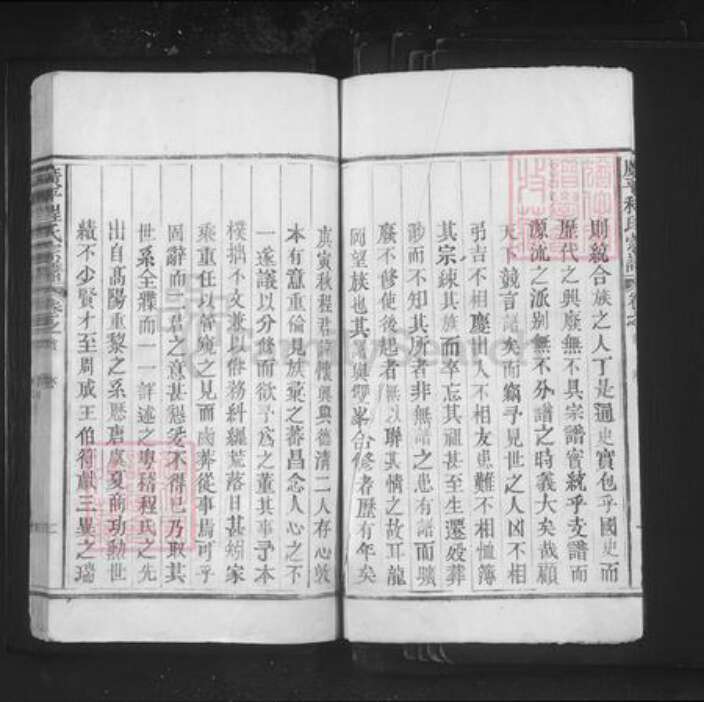 廣平程氏宗譜 卷之首
則統合族之人丁是通史實包乎國史而
歷代之興廢無不具宗譜實統乎支譜而
源流之派别無不分譜之時義大矣哉顧
天下競言譜矣而竊予見世之人凶不相
弔吉不相慶出入不相友患難不相恤簿
其宗練其族而卒忘其祖甚至生遷殁葬
渺而不知其所者非無譜之患有譜而曠
廢不修使後起者無以聯其情之故耳龍
岡望族也其 與 峯合修者歷有年矣
庚寅秋程君 懷興與德清二人存心敦
本有意重倫見族衆之蕃昌念人心之不
一遂議以分修而欲予爲之董其事予本
樸拙不文兼以俗務糾纏荒落日甚矧家
乘重任以管窺之見而鹵莽從事焉可乎
固辭而二君之意甚懇爰不得已乃取其
世系全牒而一一評述之粤稽程氏之先
出自高陽重黎之系歷唐虞夏商功勳世
績不少賢才至周成王伯符獻三異之瑞
廣平程氏宗譜 卷之首 序